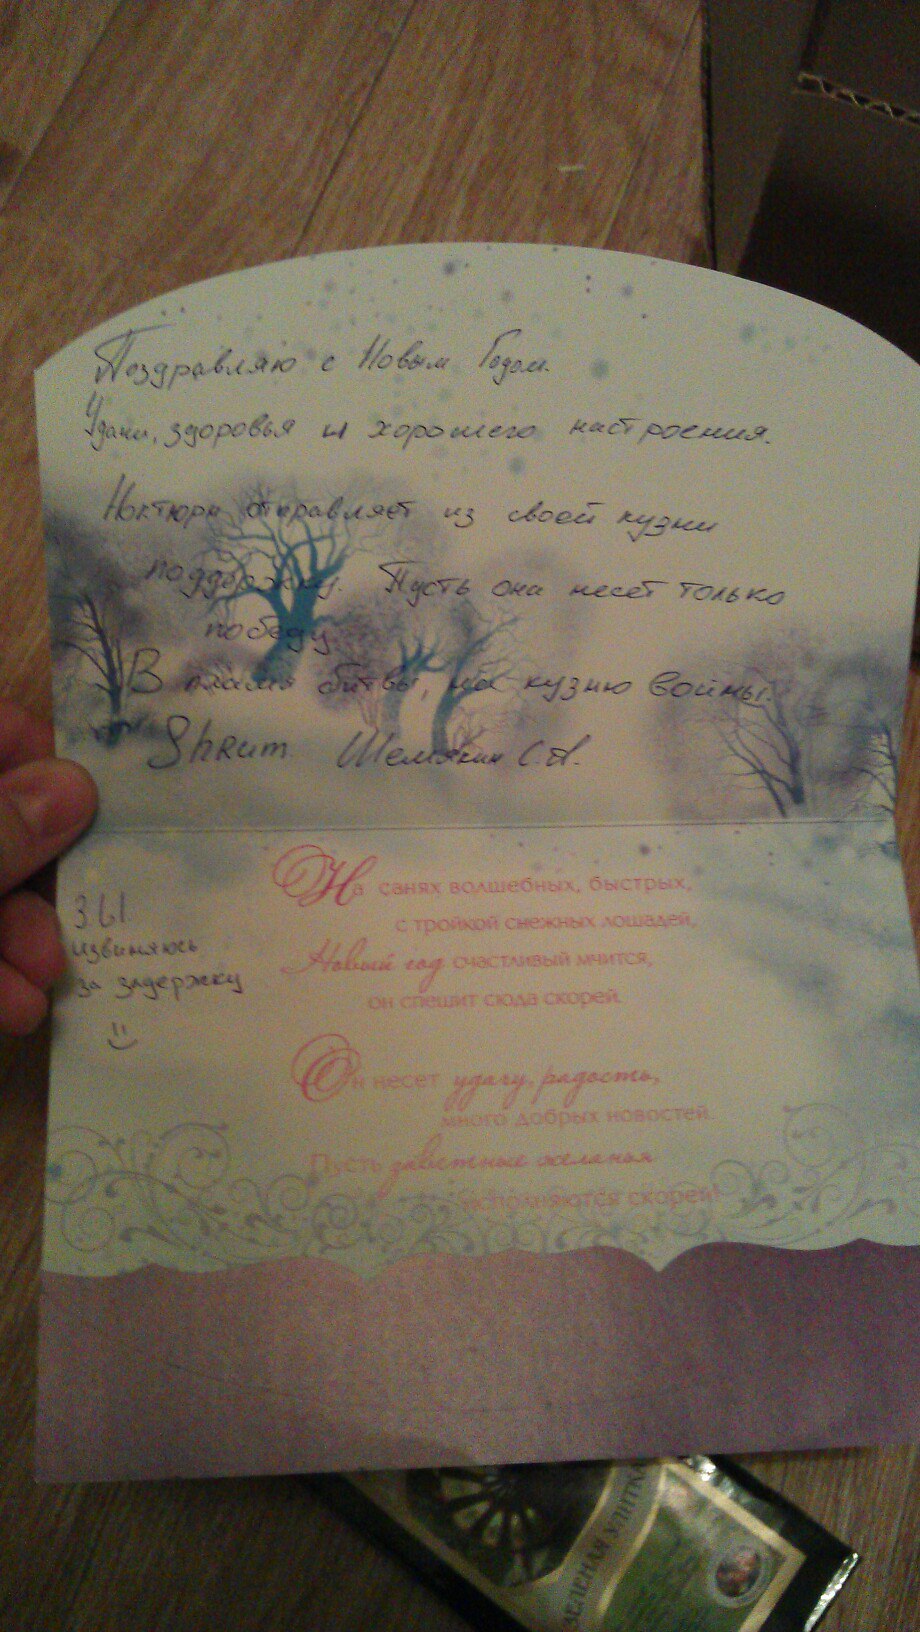 Поздравляю с Новым Годом.
Удачи, здоровья и хорошего настроения.
Ноктюрн отправляет из своей кузни
поддержку. Пусть она несет только
победу.
В пламя битвы, на кузню войны.
Shrum Шемякин С.А.
З.Ы.
извиняюсь
за задержку
На санях волшебных, быстрых,
с тройкой снежных лошадей,
Новый год счастливый мчится,
он спешит сюда скорей.
Он несет удачу, радость,
много добрых новостей.
Пусть заветные желанья
исполняются скорей!
ЗЕЛЕНАЯ УЛИТКА